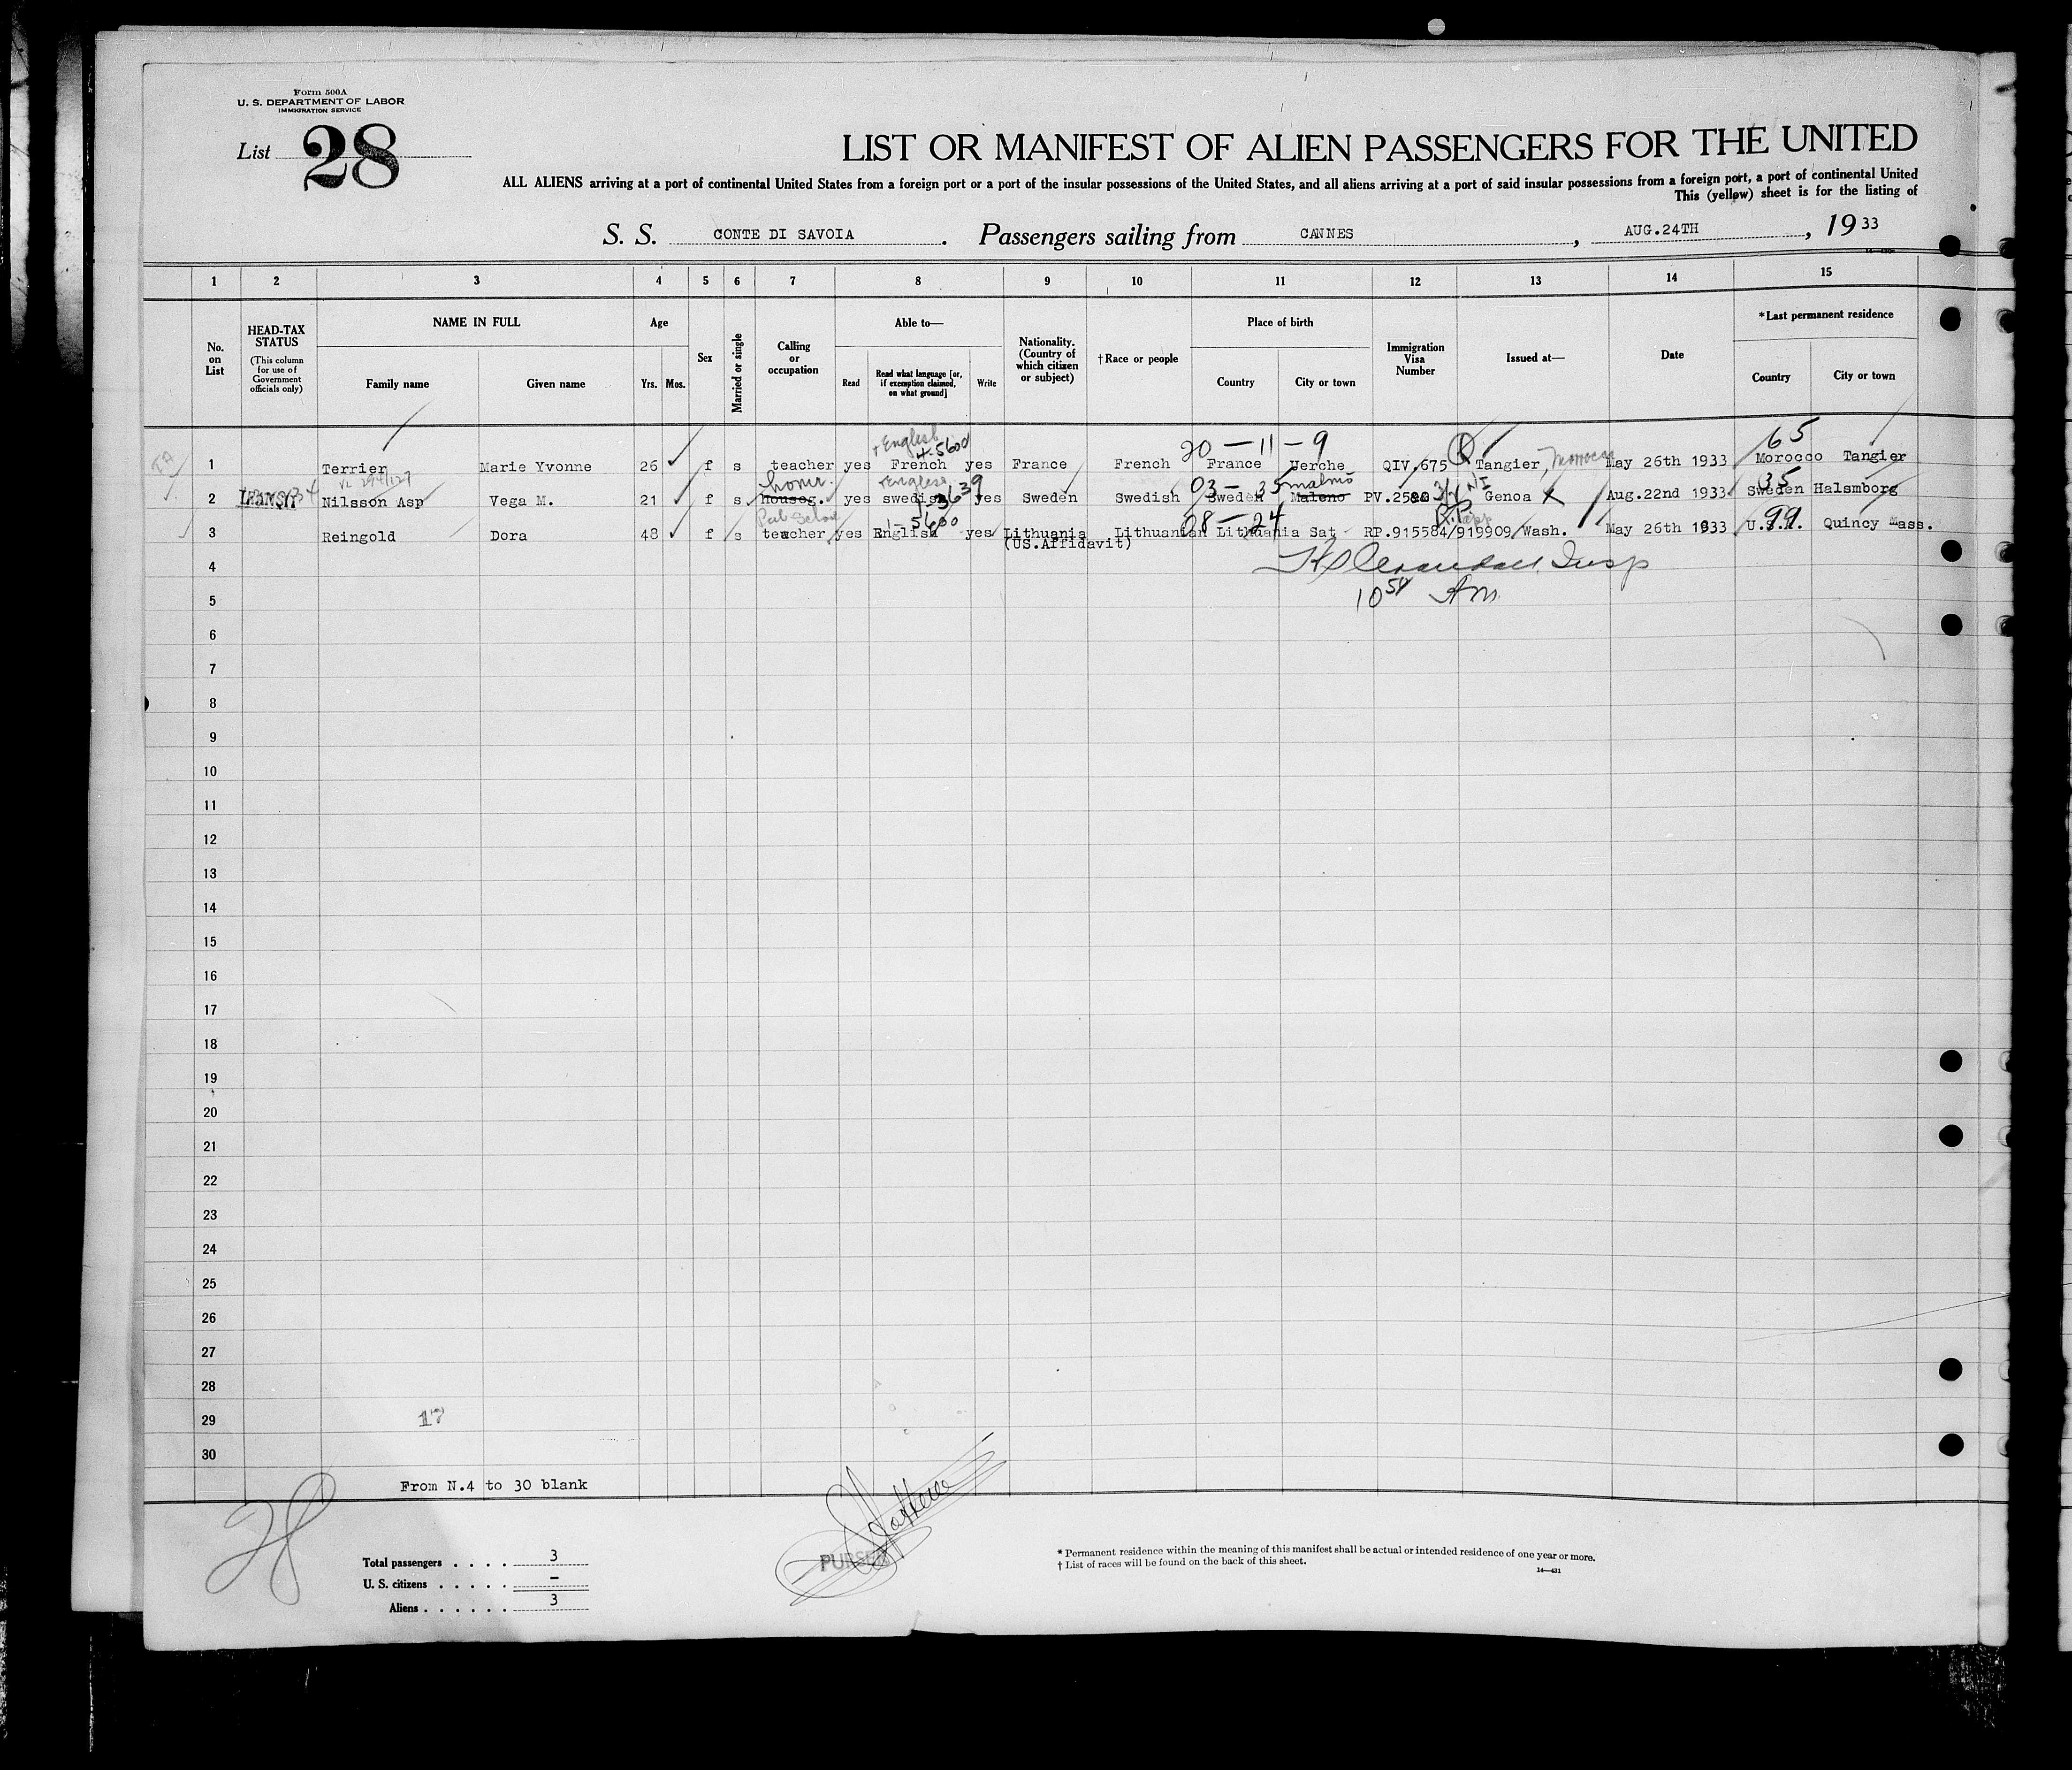 Form 500A
U. S. DEPARTMENT OF LABOR
IMMIGRATION SERVICE
List 28
LIST OR MANIFEST OF ALIEN PASSENGERS FOR THE UNITED
ALL ALIENS arriving at a port of continental United States from a foreign port or a port of the insular possessions of the United States, and all aliens arriving at a port of said insular possessions from a foreign port, a port of continental United
This (yellow) sheet is for the listing of
S. S. CONTE DI SAVOIA . Passengers sailing from CANNES , AUG.24TH , 19 33
1 2 3 4 5 6 7 8 9 10 11 12 13 14 15
No. on List
HEAD-TAX STATUS (This column for use of Government officials only)
NAME IN FULL
Family name Given name
Age
Yrs. Mos.
Sex
Married or single
Calling or occupation
Able to—
Read Read what language [or, if exemption claimed, on what ground] Write
Nationality. (Country of which citizen or subject)
†Race or people
Place of birth
Country City or town
Immigration Visa Number
Issued at—
Date
*Last permanent residence
Country City or town
+English 4-5600 20 - 11 - 9 65
1 Terrier Marie Yvonne 26 f s teacher yes French yes France French France Uerche QIV.675 Tangier, Morocco May 26th 1933 Morocco Tangier
+English 03 - 35 malmö NI 35
2 TRANSIT Nilsson Asp Vega M. 21 f s houseg. yes swedish yes Sweden Swedish Sweden Maleno PV.2580 Genoa X Aug.22nd 1933 Sweden Halsmborg
Pub School 1-5600 08 - 24 R.P. 99
3 Reingold Dora 48 f s teacher yes English yes Lithuania Lithuanian Lithuania Sat RP.915584/919909 Wash. May 26th 1933 U.S.A. Quincy Mass.
(US.Affidavit)
4 Insp
5 10 54 Am
6
7
8
9
10
11
12
13
14
15
16
17
18
19
20
21
22
23
24
25
26
27
28
29 17
30
From N.4 to 30 blank
28
Total passengers . . . . 3
U. S. citizens . . . . . –
Aliens . . . . . . 3
PURSER
* Permanent residence within the meaning of this manifest shall be actual or intended residence of one year or more.
† List of races will be found on the back of this sheet.
14—431